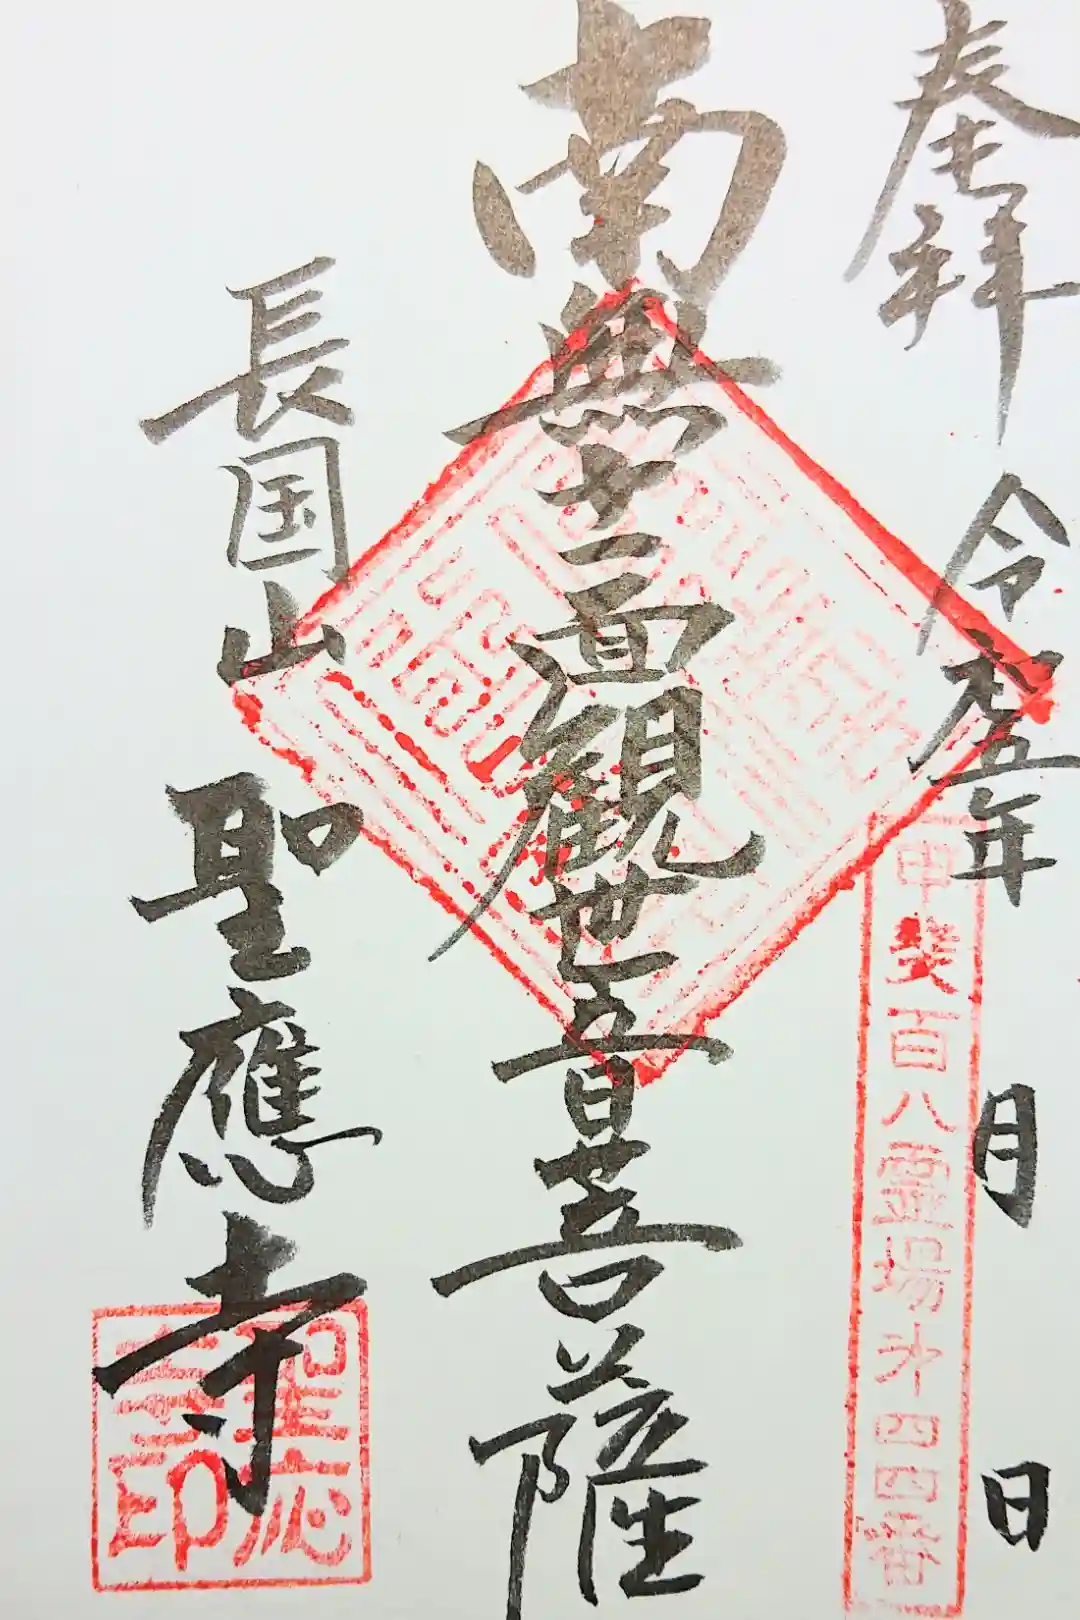 奉拝
令和五年 月 日
甲斐百八霊場第四四番
南無十一面観世音菩薩
長国山
聖應寺
聖応寺印